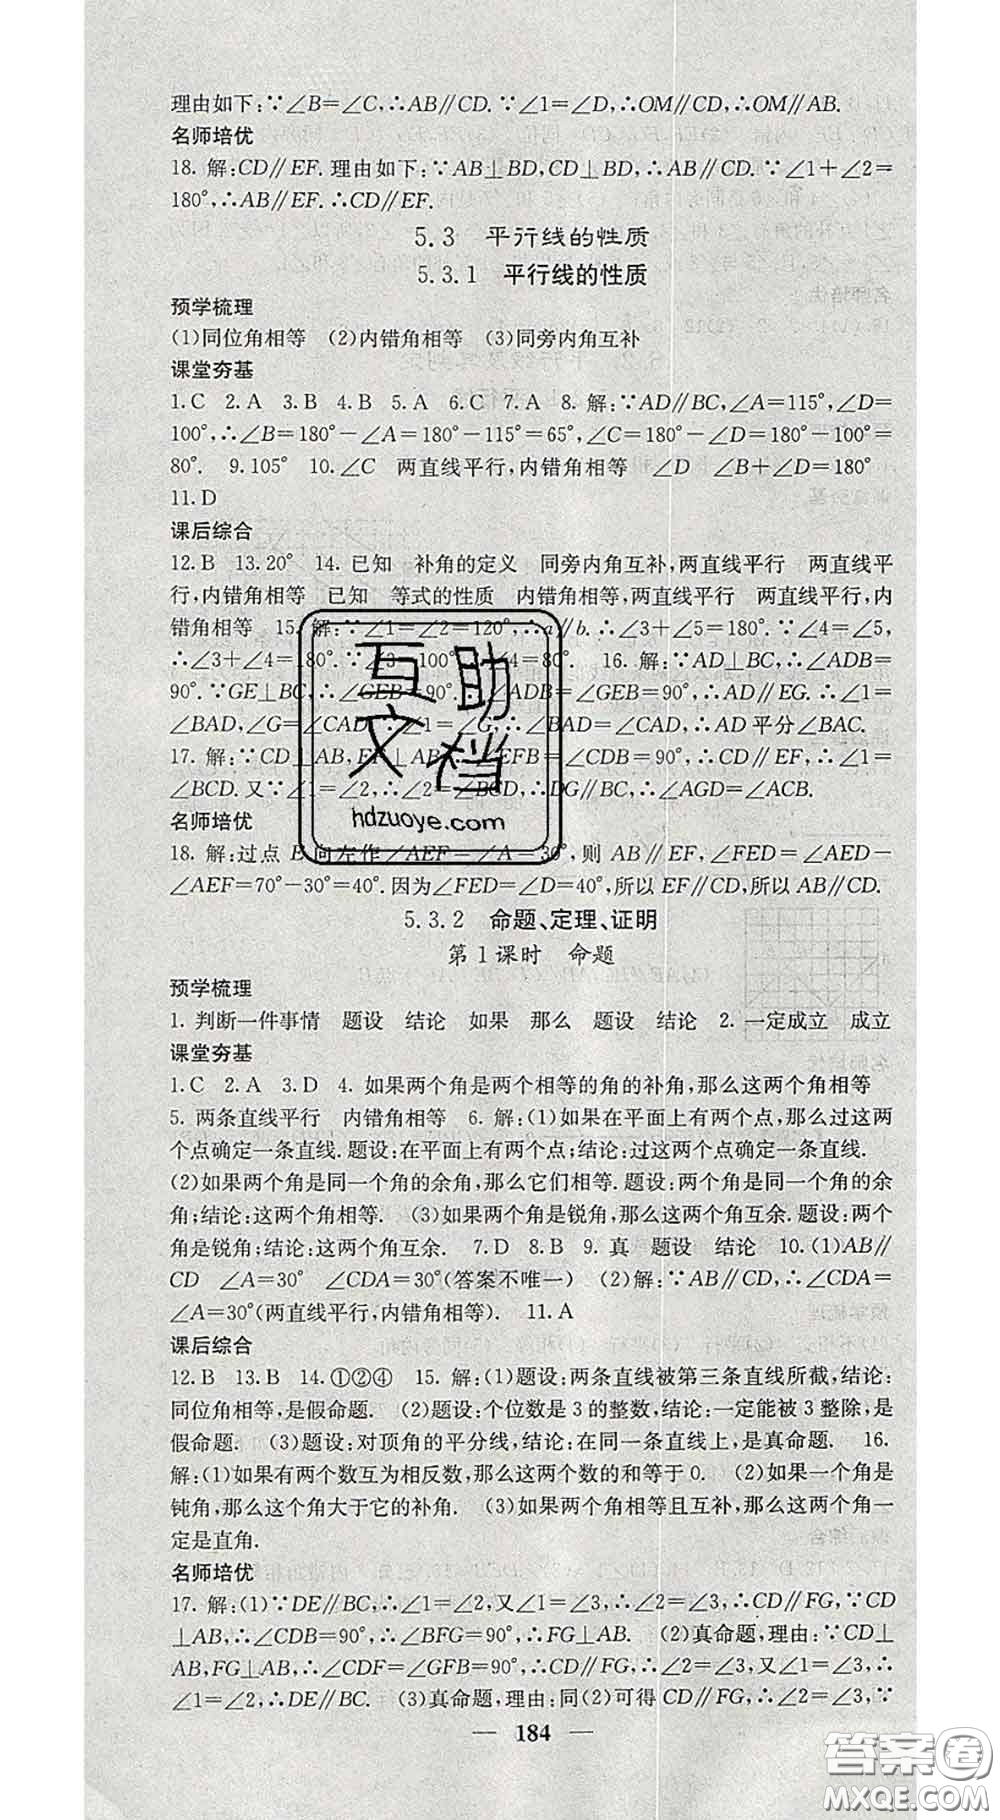 理由如下:∵∠B=∠C,∴AB∥CD.∵∠1=∠D,∴OM∥CD,∴OM∥AB.
名师培优
18. 解:CD∥EF.理由如下:∵AB⊥BD,CD⊥BD,∴AB∥CD.∵∠1+∠2=
180°,∴AB∥EF.∴CD∥EF.
5.3 平行线的性质
5.3.1 平行线的性质
预学梳理
(1)同位角相等 (2)内错角相等 (3)同旁内角互补
课堂夯基
1.C 2.A 3.B 4.B 5.A 6.C 7.A 8.解:∵AD∥BC,∠A=115°,∠D=
100°,∴∠B=180°-∠A=180°-115°=65°,∠C=180°-∠D=180°-100°=
80°. 9.105° 10.∠C 两直线平行,内错角相等 ∠D ∠B+∠D=180°
11.D
课后综合
12.B 13.20° 14. 已知 补角的定义 同旁内角互补,两直线平行 两直线平
行,内错角相等 已知 等式的性质 内错角相等,两直线平行 两直线平行,内
错角相等 15. 解:∵∠1=∠2=120°,∴a∥b.∴∠3+∠5=180°.∵∠4=∠5,
∴∠3+∠4=180°.∵∠3=100°,∴∠4=80°. 16. 解:∵AD⊥BC,∴∠ADB=
90°.∵GE⊥BC,∴∠GEB=90°.∴∠ADB=∠GEB=90°,∴AD∥EG.∴∠1=
∠BAD,∠G=∠CAD.∵∠1=∠G,∴∠BAD=∠CAD,∴AD平分∠BAC.
17. 解:∵CD⊥AB,EF⊥AB,∴∠EFB=∠CDB=90°,∴CD∥EF,∴∠1=
∠BCD.又∵∠1=∠2,∴∠2=∠BCD,∴DG∥BC,∴∠AGD=∠ACB.
名师培优
18. 解:过点 E 向左作∠AEF=∠A=30°,则 AB∥EF,∠FED=∠AED-
∠AEF=70°-30°=40°.因为∠FED=∠D=40°,所以EF∥CD,所以AB∥CD.
5.3.2 命题、定理、证明
第1课时 命题
预学梳理
1. 判断一件事情 题设 结论 如果 那么 题设 结论 2. 一定成立 成立
课堂夯基
1.C 2.A 3.D 4. 如果两个角是两个相等的角的补角,那么这两个角相等
5. 两条直线平行 内错角相等 6. 解:(1)如果在平面上有两个点,那么过这两
个点确定一条直线.题设:在平面上有两个点;结论:过这两个点确定一条直线.
(2)如果两个角是同一个角的余角,那么它们相等.题设:两个角是同一个角的余
角;结论:这两个角相等. (3)如果两个角是锐角,那么这两个角互余.题设:两个
角是锐角;结论:这两个角互余. 7.D 8.B 9. 真 题设 结论 10.(1)AB∥
CD ∠A=30° ∠CDA=30°(答案不唯一) (2)解:∵AB∥CD,∴∠CDA=
∠A=30°(两直线平行,内错角相等). 11.A
课后综合
12.B 13.B 14.①②④ 15. 解:(1)题设:两条直线被第三条直线所截,结论:
同位角相等,是假命题. (2)题设:个位数是 3 的整数,结论:一定能被 3 整除,是
假命题. (3)题设:对顶角的平分线,结论:在同一条直线上,是真命题. 16.
解:(1)如果有两个数互为相反数,那么这两个数的和等于 0. (2)如果一个角是
钝角,那么这个角大于它的补角. (3)如果两个角相等且互补,那么这两个角一
定是直角.
名师培优
17. 解:(1)∵DE∥BC,∴∠1=∠2,又∠1=∠3,∴∠2=∠3,∴CD∥FG,∵CD
⊥AB,∴∠CDB=90°,∴∠BFG=90°,∴FG⊥AB. (2)真命题,理由:∵CD⊥
AB,FG⊥AB,∴∠CDF=∠GFB=90°,∴CD∥FG,∴∠2=∠3,又∠1=∠3,∴
∠1=∠2,∴DE∥BC. (3)真命题,理由:同(2)可得 CD∥FG,∴∠2=∠3,∵
— 184 —
互助
文档
hdzuoye.com
答案圈
MXQE.COM